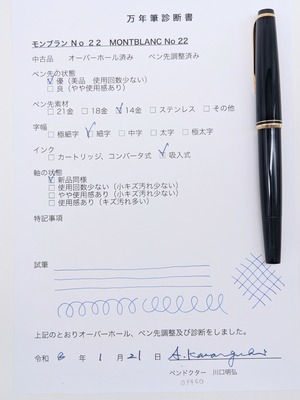 万年筆診断書
モンブラン No 22 MONTBLANC No 22
中古品 オーバーホール済み ペン先調整済み
ペン先の状態
☑ 優（美品 使用回数少ない）
□ 良（やや使用感あり）
ペン先素材
□ 21金 □ 18金 ☑ 14金 □ ステンレス □ その他
字幅
□ 極細字 ☑ 細字 □ 中字 □ 太字 □ 極太字
インク
□ カートリッジ、コンバータ式 ☑ 吸入式
軸の状態
☑ 新品同様
□ 使用回数少ない（小キズ汚れ少ない）
□ やや使用感あり（小キズ汚れ少ない）
□ 使用感あり（キズ汚れ多い）
特記事項
試筆
上記のとおりオーバーホール、ペン先調整及び診断をしました。
令和 8 年 1 月 21 日
ペンドクター 川口明弘